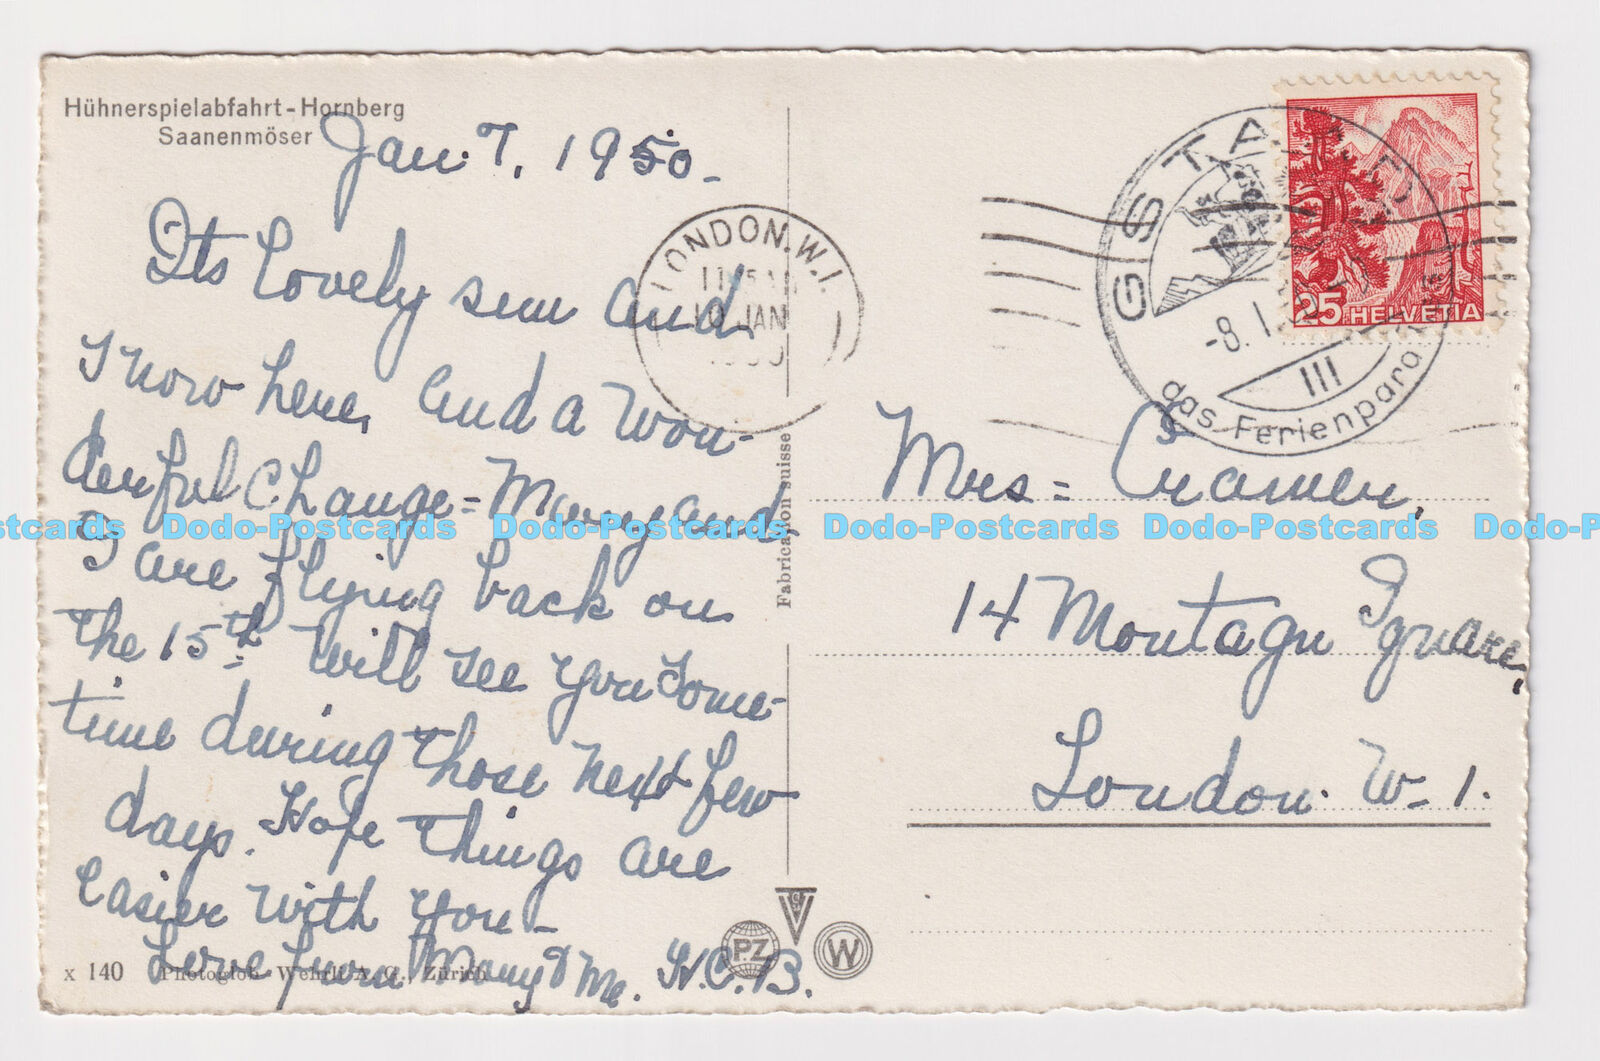 Hühnerspielabfahrt - Hornberg
Saanenmöser
Jan. 7, 1950 -
Its lovely sun and
snow here, and a won-
derful change = Mary and
I are flying back on
the 15th. Will see you some-
time during those next few
days. Hope things are
easier with you -
Love from Mary & Me. H.C.B.
x 140 Photoglob-Wehrli A. G., Zürich
Fabrication suisse
PZ
W
LONDON. W.1.
11 15 AM
10 JAN
1950
GSTAAD
-8.1.
III
das Ferienpara
25 HELVETIA
Mrs = Cramer,
14 Montagu Square,
London. W-1.
Dodo-Postcards Dodo-Postcards Dodo-Postcards Dodo-Postcards Dodo-Postcards